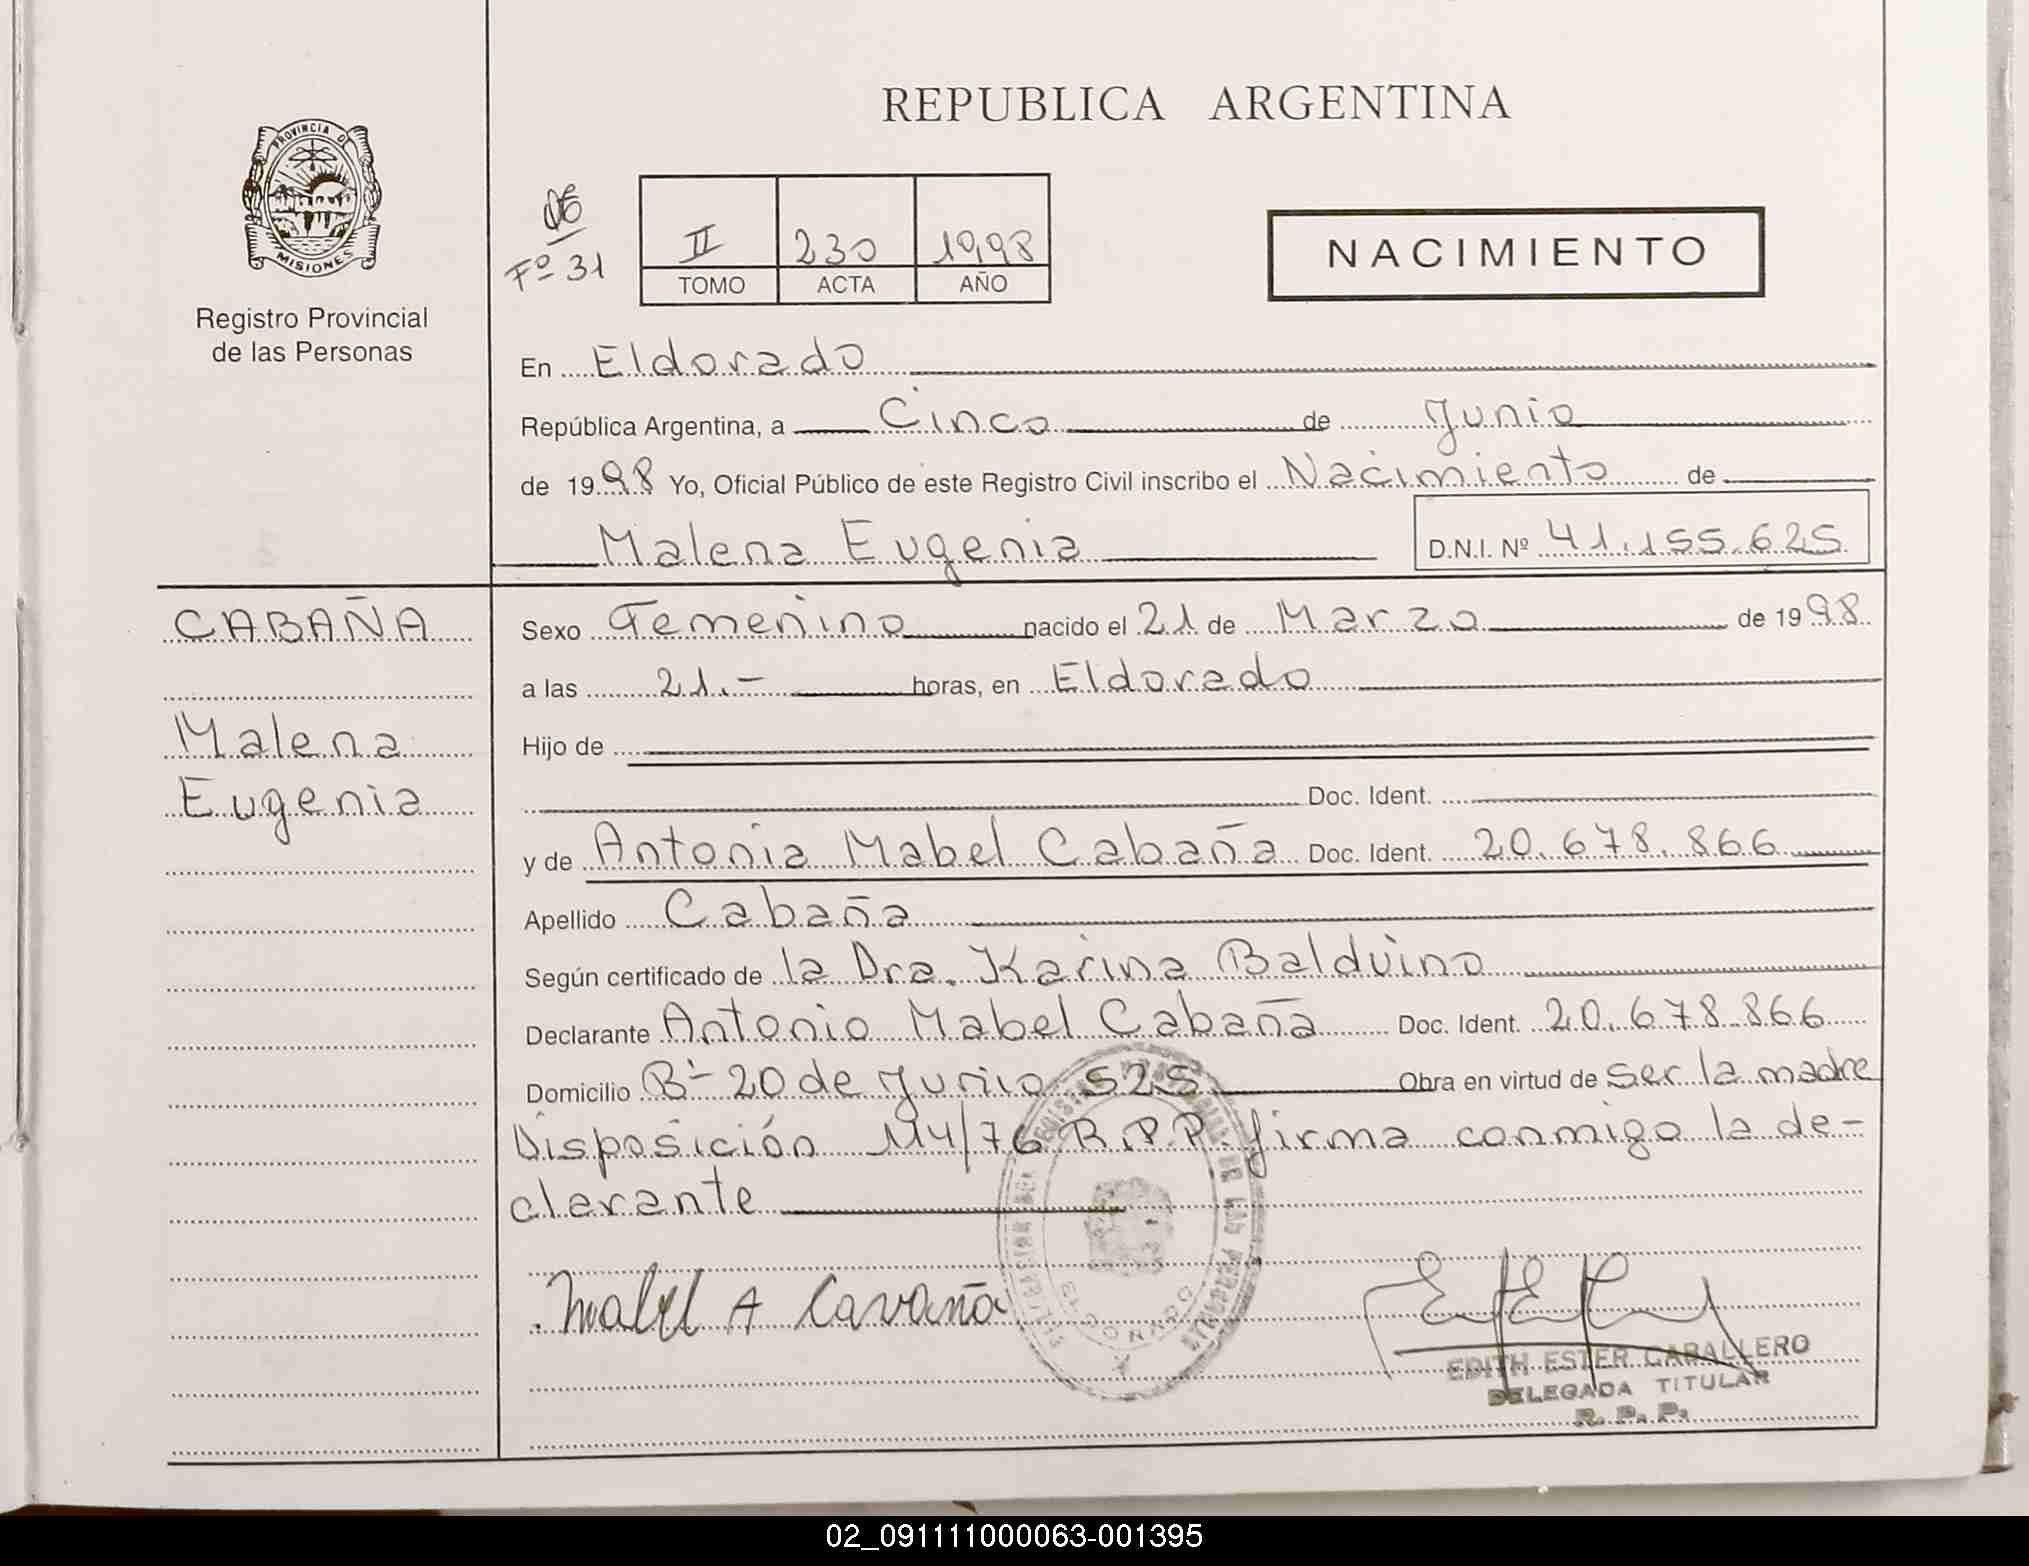 REPUBLICA ARGENTINA
PROVINCIA DE
MISIONES
Registro Provincial
de las Personas
Fº 31
II 230 1998
TOMO ACTA AÑO
NACIMIENTO
En Eldorado
República Argentina, a Cinco de Junio
de 1998 Yo, Oficial Público de este Registro Civil inscribo el Nacimiento de
Malena Eugenia D.N.I. Nº 41.155.625
CABAÑA
Malena
Eugenia
Sexo Femenino nacido el 21 de Marzo de 1998
a las 21.- horas, en Eldorado
Hijo de
Doc. Ident.
y de Antonia Mabel Cabaña Doc. Ident. 20.678.866
Apellido Cabaña
Según certificado de la Dra. Karina Balduino
Declarante Antonio Mabel Cabaña Doc. Ident. 20.678.866
Domicilio Bº 20 de Junio 525 Obra en virtud de ser la madre
Disposición 114/76 R.P.P. firma conmigo la de-
clarante
Mabel A Cavaña
ELDORADO
EDITH ESTER CABALLERO
DELEGADA TITULAR
R. P. P.
02_091111000063-001395